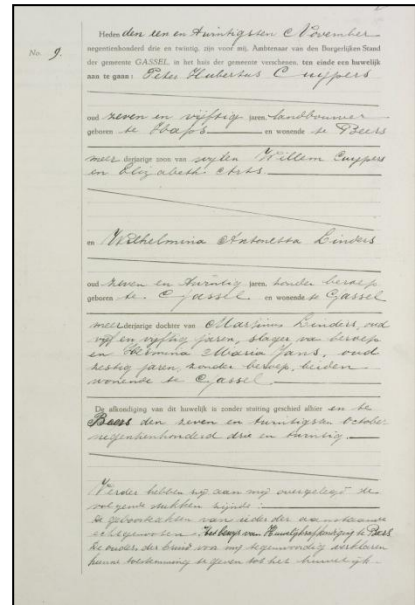 Heden den een en twintigsten November
negentienhonderd drie en twintig, zijn voor mij, Ambtenaar van den Burgerlijken Stand
der gemeente GASSEL, in het huis der gemeente verschenen, ten einde een huwelijk
aan te gaan: Peter Hubertus Cuypers
No. 9.
oud zeven en vijftig jaren, landbouwer
geboren te Haps en wonende te Beers
meerderjarige zoon van wijlen Willem Cuypers
en Elizabeth Arts
en Wilhelmina Antonetta Linders
oud zeven en twintig jaren, zonder beroep
geboren te Gassel en wonende te Gassel
meerderjarige dochter van Martinus Linders, oud
vijf en vijftig jaren, slager van beroep
en Maria Jans, oud
zestig jaren, zonder beroep, beiden
wonende te Gassel.
De afkondiging van dit huwelijk is zonder stuiting geschied alhier en te
Beers den zeven en twintigsten October
negentienhonderd drie en twintig.
Verder hebben zij aan mij overgelegd de
volgende stukken zijnde:
de geboorteakten van ieder der aanstaande
echtgenooten. Het bewijs van Huwelijksafkondiging te Beers
De ouders der bruid voor mij tegenwoordig verklaren
hunne toestemming te geven tot het huwelijk.